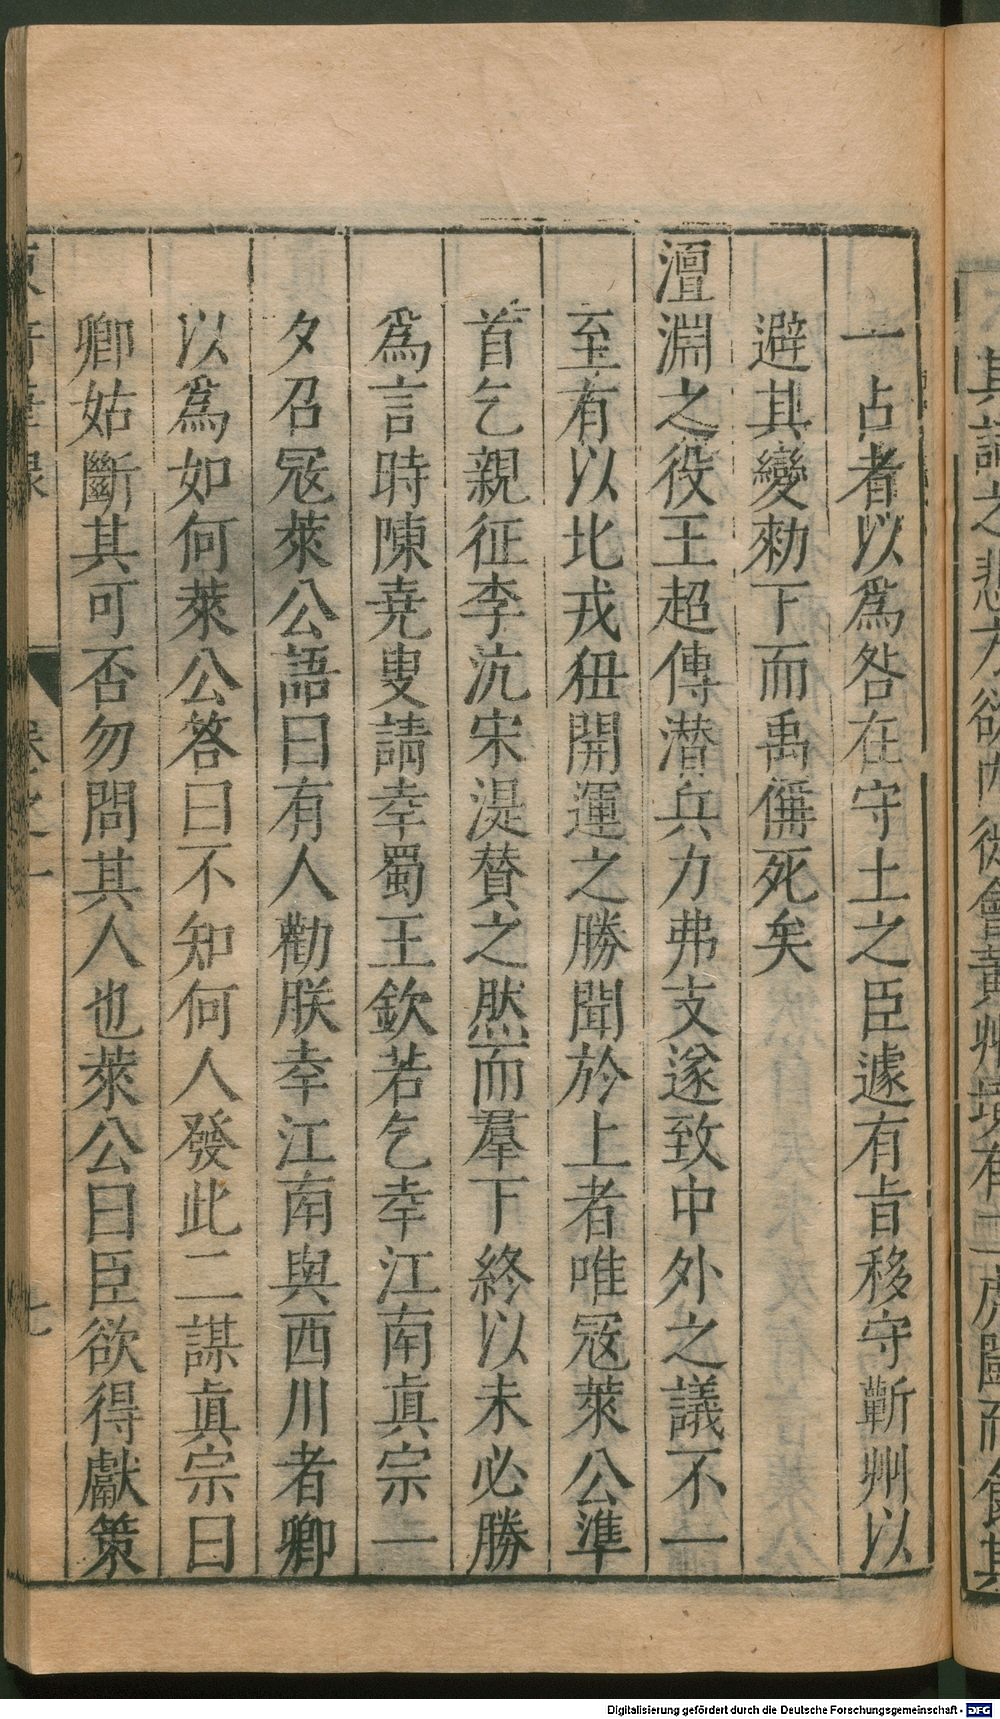 一占者以爲咎在守土之臣遽有旨移守蘄州以
避其變勑下而禹偁死矣
澶淵之役王超傳潜兵力弗支遂致中外之議不一
至有以北戎狃開運之勝聞於上者唯冦萊公準
首乞親征李沆宋湜賛之然而羣下終以未必勝
爲言時陳堯叟請幸蜀王欽若乞幸江南眞宗一
夕召冦萊公語曰有人勸朕幸江南與西川者卿
以爲如何萊公答曰不知何人發此二謀眞宗曰
卿姑斷其可否勿問其人也萊公曰臣欲得獻策
卷之一
七
Digitalisierung gefördert durch die Deutsche Forschungsgemeinschaft - DFG